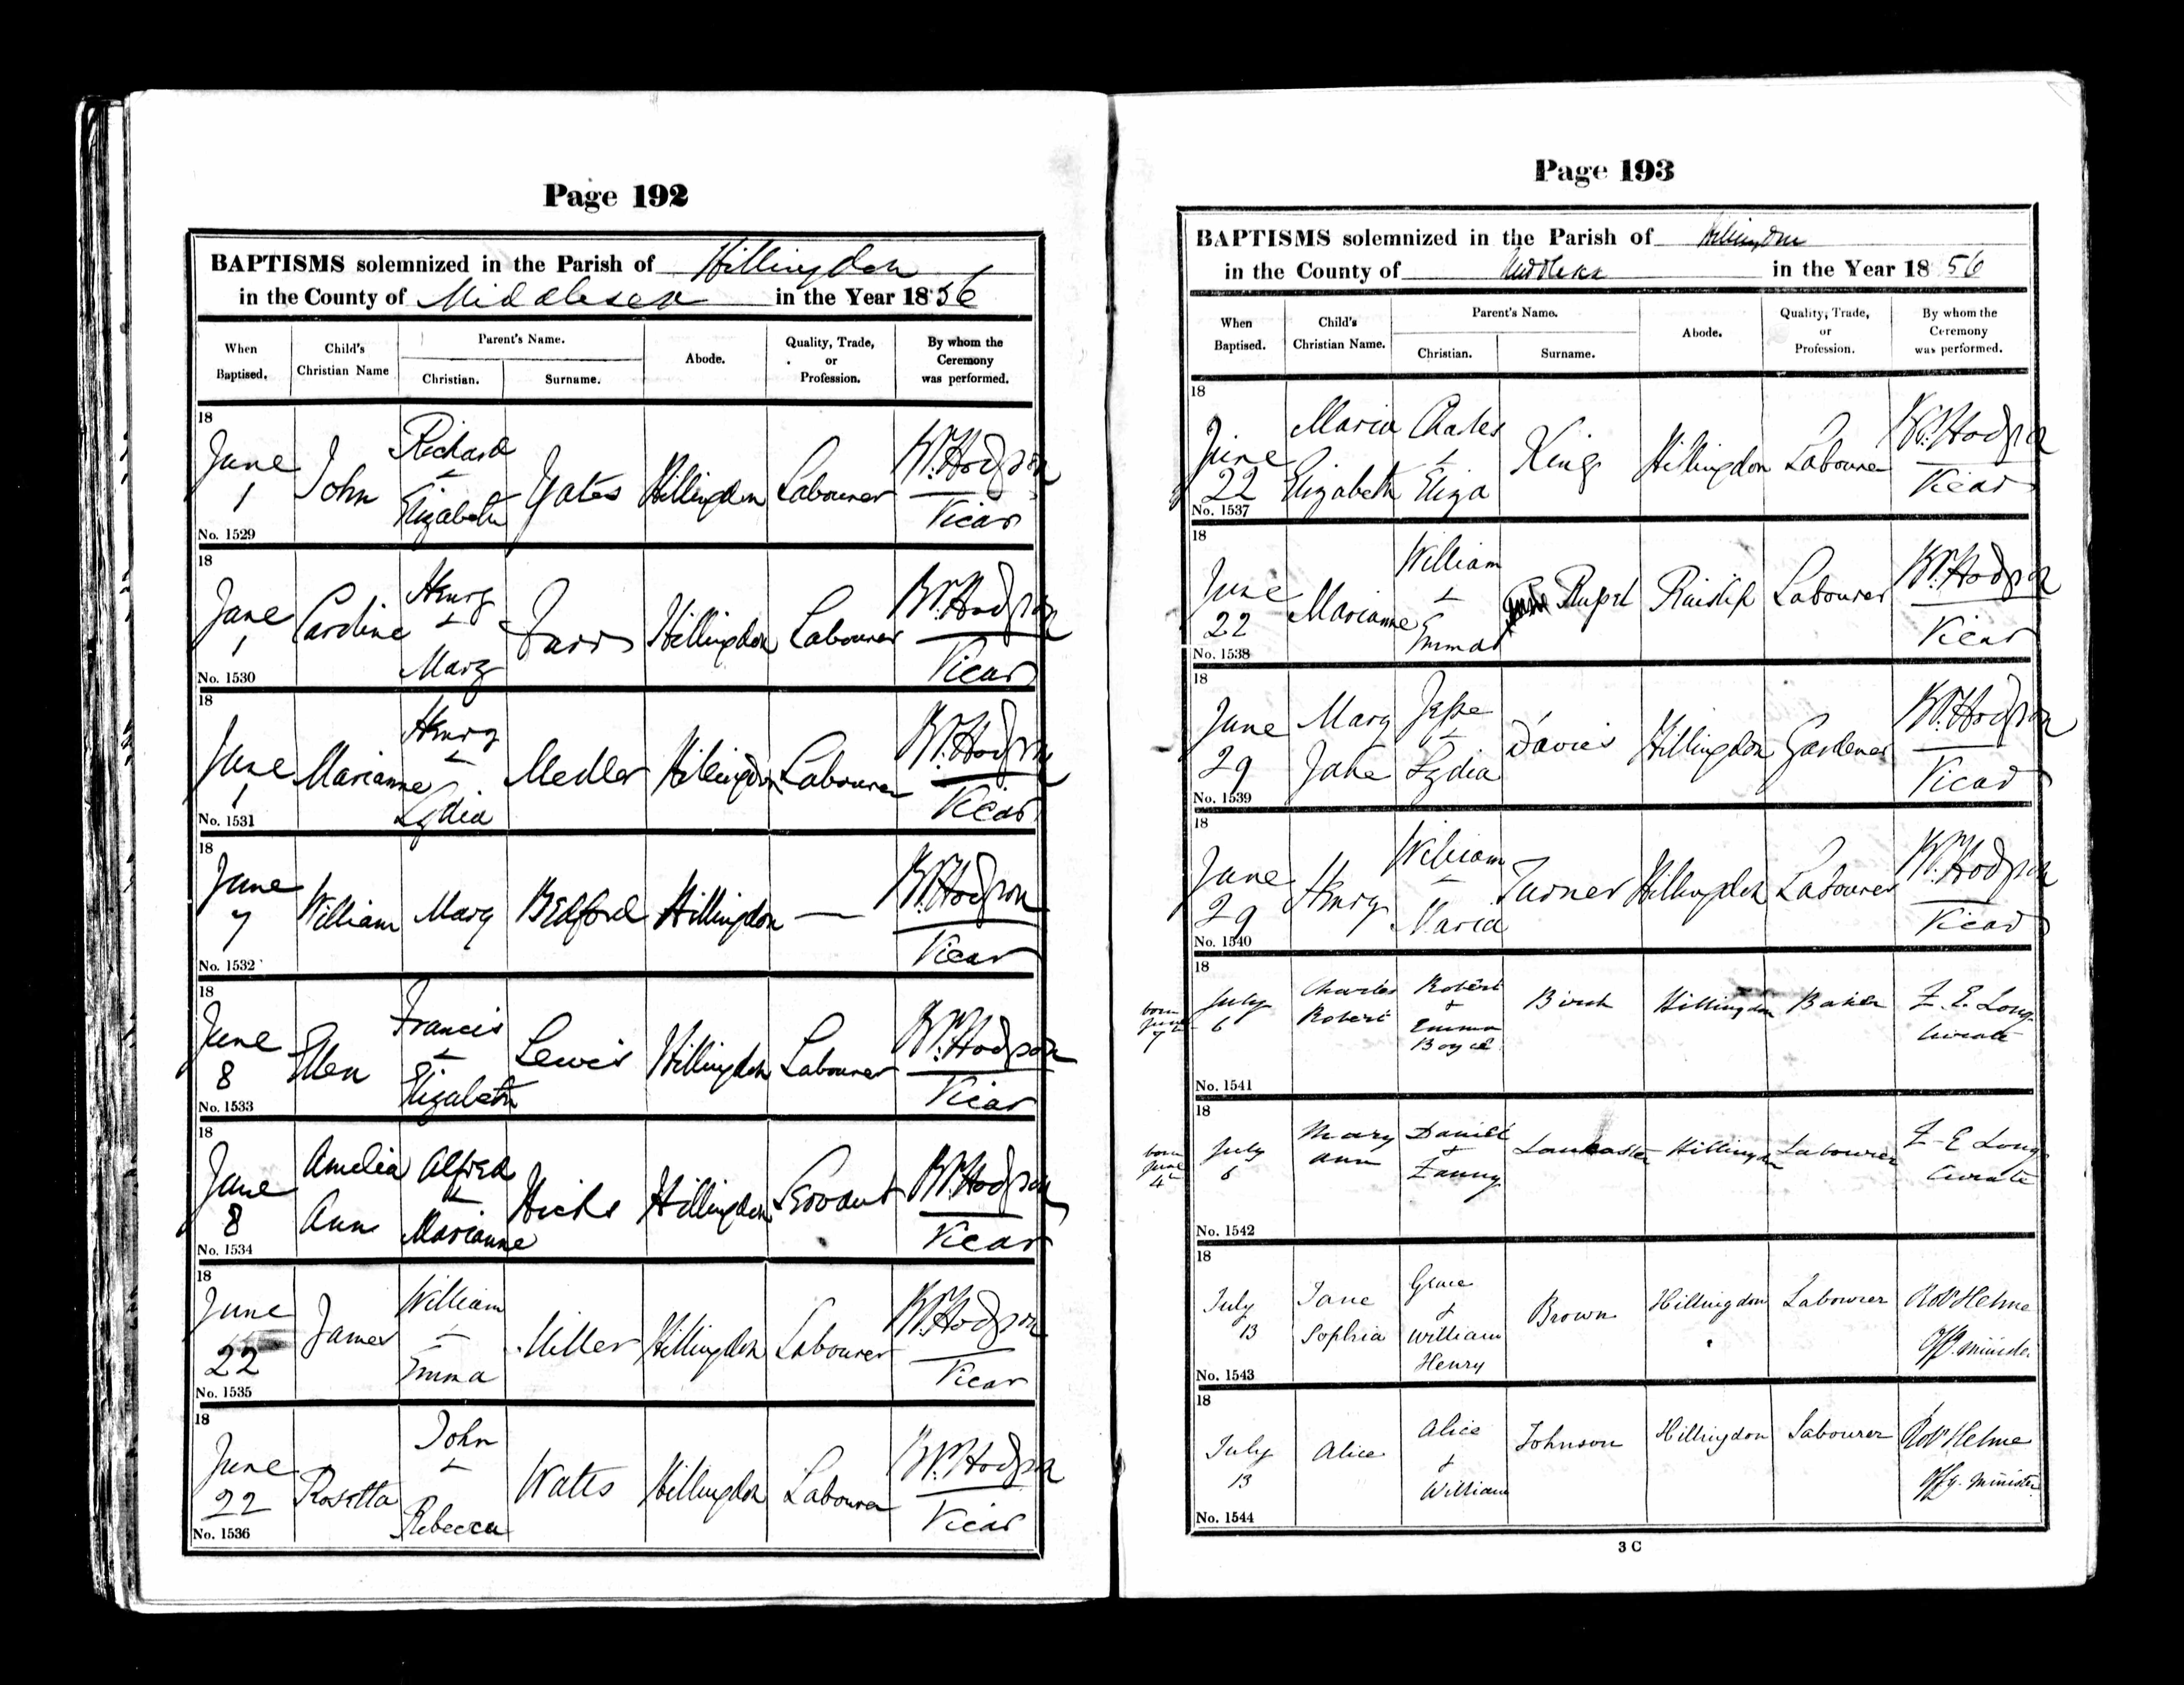 Page 192
BAPTISMS solemnized in the Parish of Hillingdon
in the County of Middlesex in the Year 1856
When Baptised. Child's Christian Name Parent's Name. Christian. Surname. Abode. Quality, Trade, or Profession. By whom the Ceremony was performed.
18 June 1 John Richard & Elizabeth Yates Hillingdon Labourer W. Hodgson Vicar
No. 1529
18 June 1 Caroline Henry & Mary Farr Hillingdon Labourer W. Hodgson Vicar
No. 1530
18 June 1 Marianne Henry & Lydia Medler Hillingdon Labourer W. Hodgson Vicar
No. 1531
18 June 7 William Mary Bedford Hillingdon — W. Hodgson Vicar
No. 1532
18 June 8 Ellen Francis & Elizabeth Lewis Hillingdon Labourer W. Hodgson Vicar
No. 1533
18 June 8 Amelia Ann Alfred & Marianne Hicks Hillingdon Servant W. Hodgson Vicar
No. 1534
18 June 22 James William & Emma Miller Hillingdon Labourer W. Hodgson Vicar
No. 1535
18 June 22 Rosetta John & Rebecca Watts Hillingdon Labourer W. Hodgson Vicar
No. 1536
Page 193
BAPTISMS solemnized in the Parish of Hillingdon
in the County of Middlesex in the Year 1856
When Baptised. Child's Christian Name. Parent's Name. Christian. Surname. Abode. Quality, Trade, or Profession. By whom the Ceremony was performed.
18 June 22 Maria Elizabeth Charles & Eliza King Hillingdon Labourer W. Hodgson Vicar
No. 1537
18 June 22 Marianne William & Emma Ruislip Labourer W. Hodgson Vicar
No. 1538
18 June 29 Mary Jane Jesse & Lydia Davies Hillingdon Gardener W. Hodgson Vicar
No. 1539
18 June 29 Henry William & Maria Turner Hillingdon Labourer W. Hodgson Vicar
No. 1540
born June 7th 18 July 6 Charles Robert Robert & Emma Boyce Birch Hillingdon Baker F. E. Long Curate
No. 1541
born June 4th 18 July 6 Mary Ann Daniel & Fanny Lankaster Hillingdon Labourer F. E. Long Curate
No. 1542
18 July 13 Jane Sophia Grace & William Henry Brown Hillingdon Labourer Robt Helme Offg. minister
No. 1543
18 July 13 Alice Alice & William Johnson Hillingdon Labourer Robt Helme Offg. minister
No. 1544
3 C